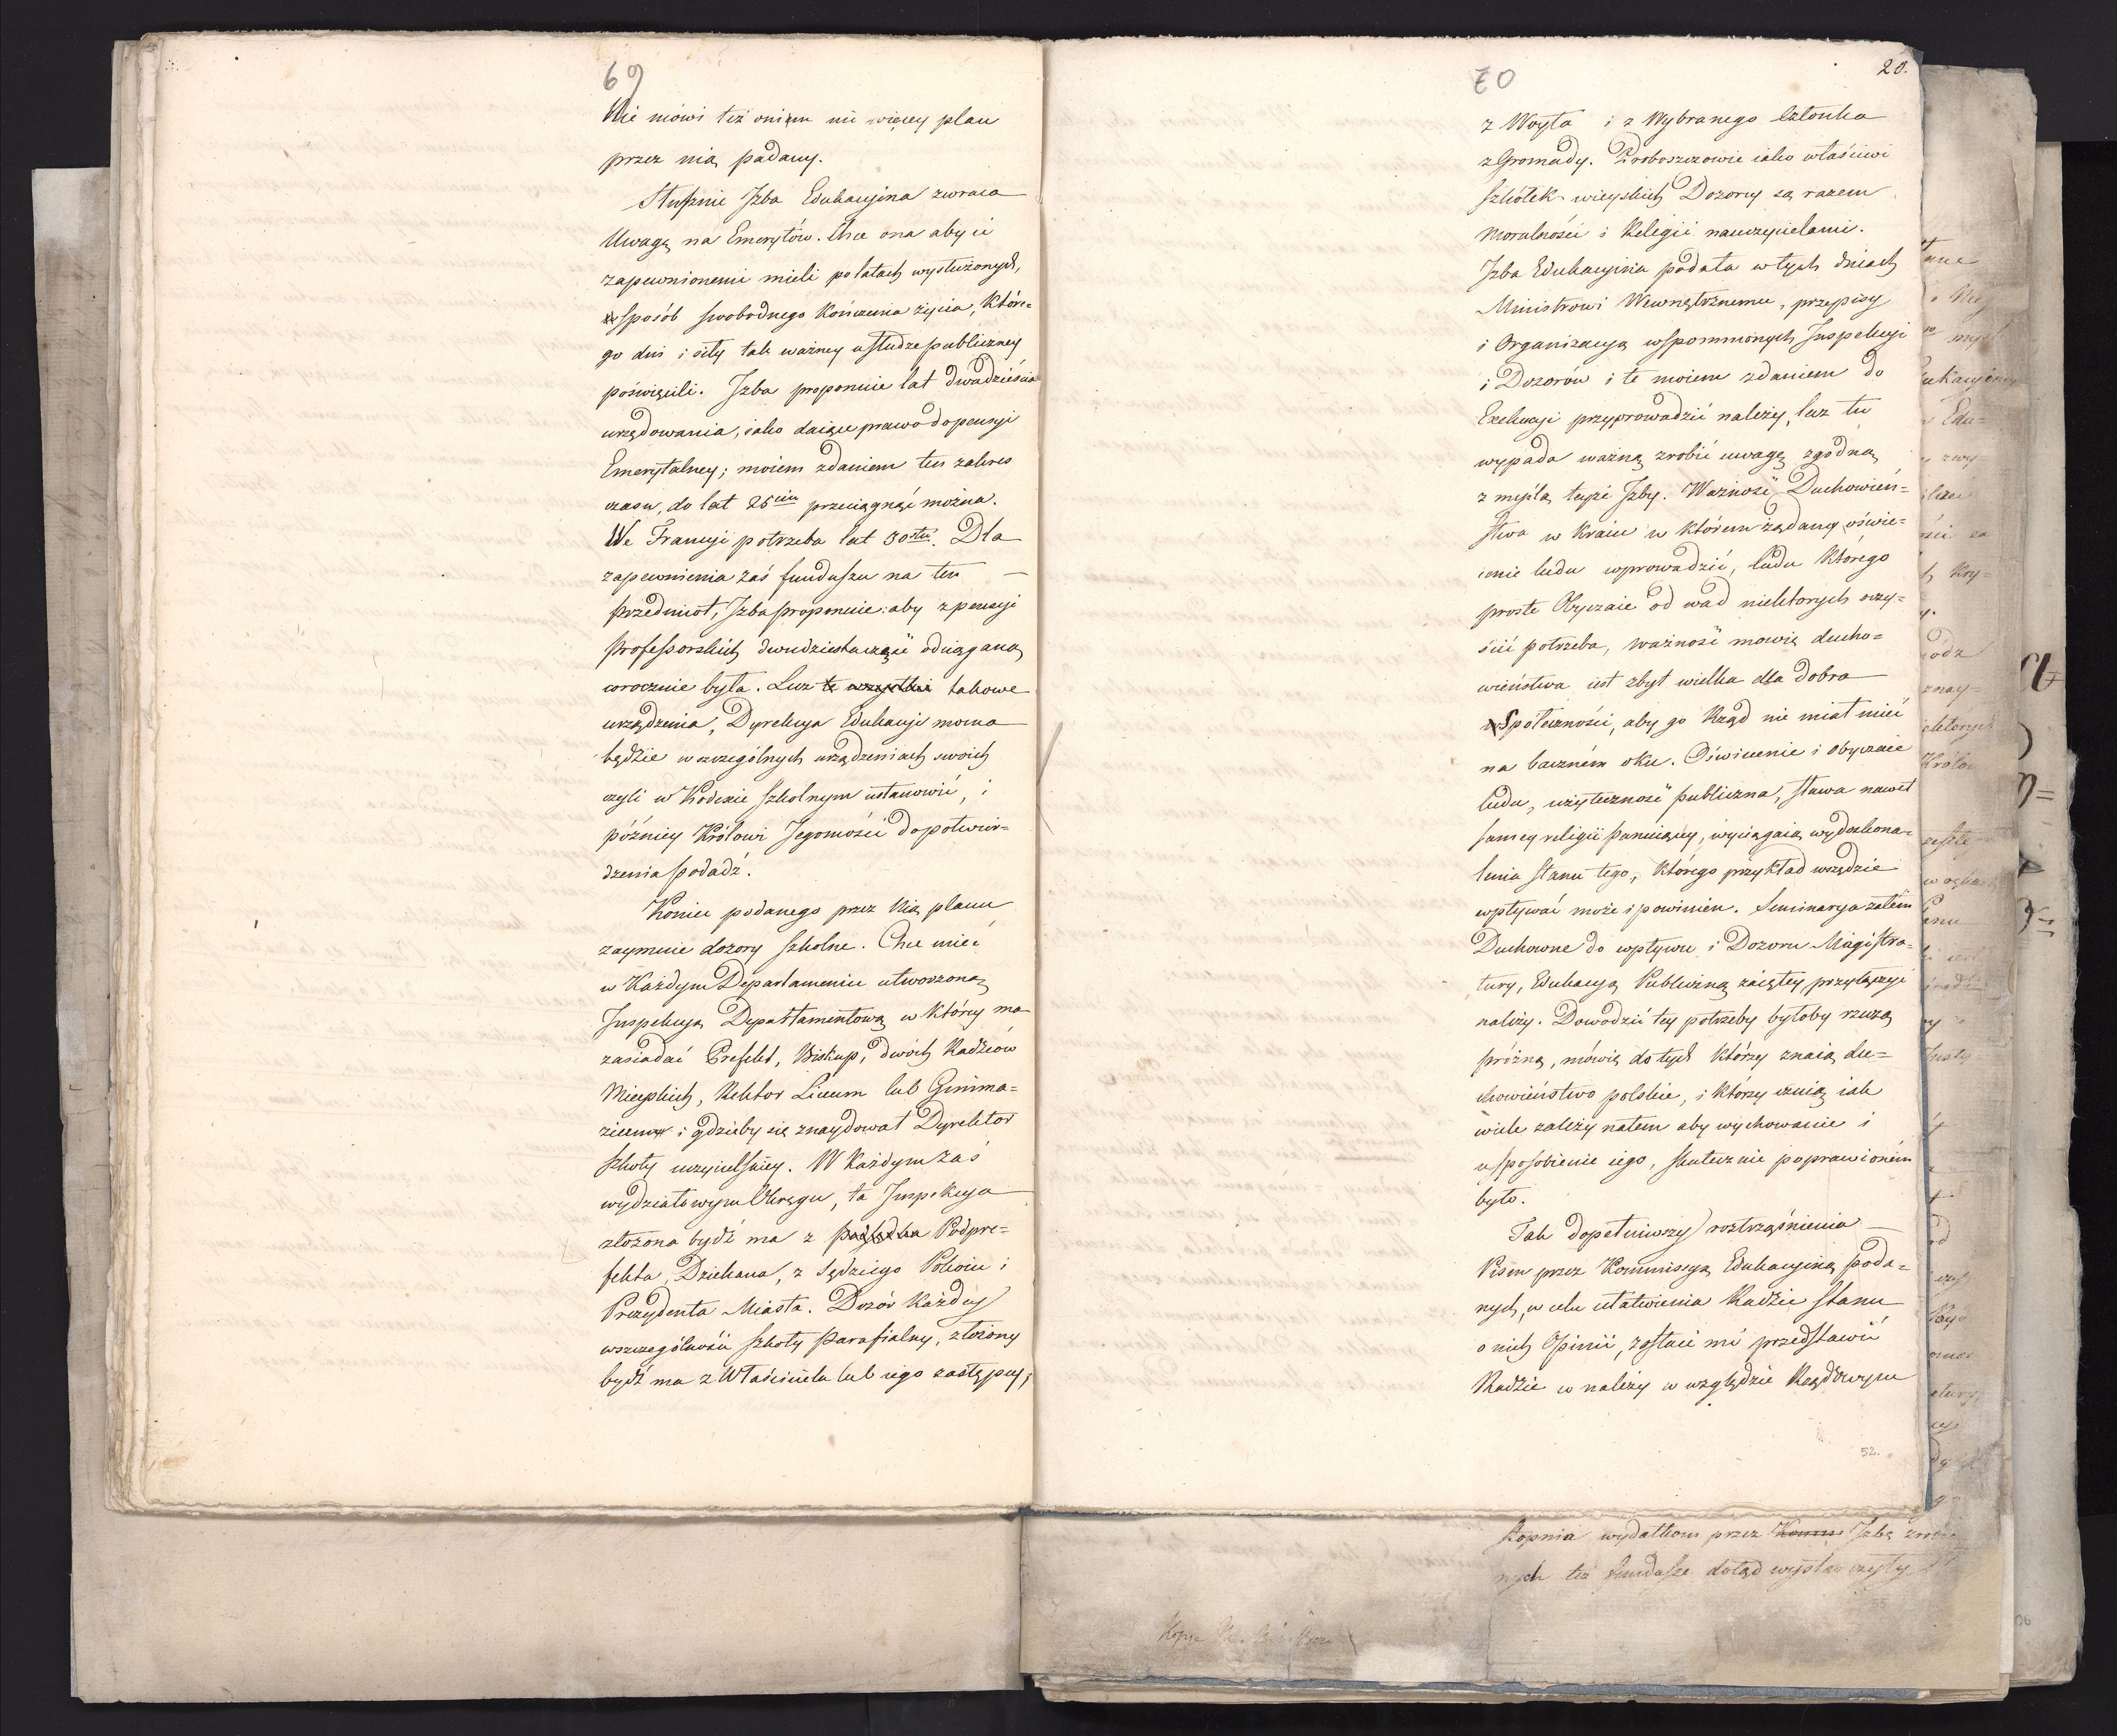 69
Nie mówi też oniém nic więcey plan
przez nią padany.
Słusznie Jzba Edukacyina zwraca
Uwagę na Emerytów. Chce ona aby ci
zapewnionemi mieli po latach wysłużonych,
sposób swobodnego Kończenia życia, Które=
go dni i siły tak ważney usłudze publiczney
poświęcili. Jzba proponuie lat dwadzieścia
urzędowania, iako daiące prawo do pensyi
Emerytalney; moiem zdaniem ten zakres
czasu, do lat 25ciu przeciągnąć można.
We Francyi potrzeba lat 30stu. Dla
zapewnienia zaś funduszu na ten
przedmiot, Jzba proponuie: aby z pensyi
Professorskich dwudziesta część odciągana
corocznie była. Lecz te wszystkie takowe
urządzenia, Dyrekcya Edukacyi mocna
będzie w szczególnych urządzeniach swoich
czyli w Kodexie szkolnym ustanowić, i
późniey Królowi Jegomości do potwier=
dzenia podadź.
Koniec podanego przez Nią planu
zaymuie dozory szkolne. Chce mieć
w Każdym Departamencie utworzoną
Jnspekcyą Departamentową w Którey ma
zasiadać Prefekt, Biskup, dwóch Radźców
Mieyskich, Rektor Liceum lub Gimna=
zium i gdzieby się znaydował Dyrektor
szkoły uczycielskiey. W Każdym zaś
wydziałowym Okręgu, ta Jnspekcya
złożona bydź ma z Podpre=
fekta, Dziekana, z Sędziego Pokoiu i
Prezydenta Miasta. Dozór Każdey
wszczególności szkoły parafialney, złożony
bydź ma z Właściciela lub iego zastępcy,
70
20.
z Woyta i z Wybranego Członka
z Gromady. Proboszczowie iako właściwi
szkółek wieyskich Dozorcy są razem
Moralności i Religii nauczycielami.
Jzba Edukacyina podała w tych dniach
Ministrowi Wewnętrznemu, przepisy
i Organizacyą wspomnionych Jnspekcyi
i Dozorów i te moiem zdaniem do
Exekucyi przyprowadzić należy, lecz tu
wypada ważną zrobić uwagę zgodną
z myślą teyże Jzby. Ważność Duchowień=
stwa w Kraiu w Którem żądamy oświe=
cenie ludu wprowadzić, ludu Którego
proste Obyczaie od wad niektorych oczy=
ścić potrzeba, ważność mowię ducho=
wieństwa iest zbyt wielka dla dobra
Społeczności, aby go Rząd nie miał mieć
na baczném oku. Oświecenie i obyczaie
ludu, użyteczność publiczna, sława nawet
samey religii panuiącey, wyciągaią wydoskona=
lenia stanu tego, Którego przykład wszędzie
wpływać może i powinien. Seminarya zatém
Duchowne do wpływu i Dozoru Magistra=
tury, Edukacyą Publiczną zaiętey, przyłączyć
należy. Dowodzić tey potrzeby byłoby rzeczą
próżną, mówię do tych którzy znaią du=
chowieństwo polskie, i Którzy czuią iak
wiele zależy natem aby wychowanie i
usposobienie iego, skutecznie poprawioném
było.
Tak dopełniwszy roztrząśnienia
Pism przez Kommissyą Edukacyiną poda=
nych, w celu ułatwienia Radzie stanu
o nich Opinii, zostaie mi przedstawić
Radzie w należy w względzie Rządowym
52.
stopnia wydatkom przez Jzbę
nych też fundusze dotąd wystarczyły